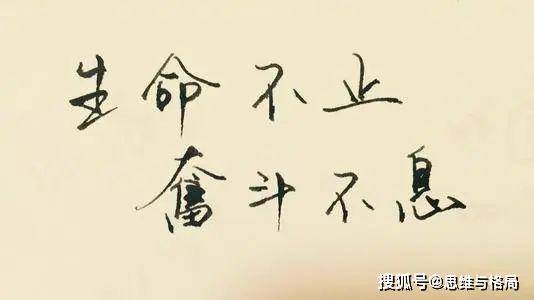 生命不止
奮斗不息
搜狐号@思维与格局